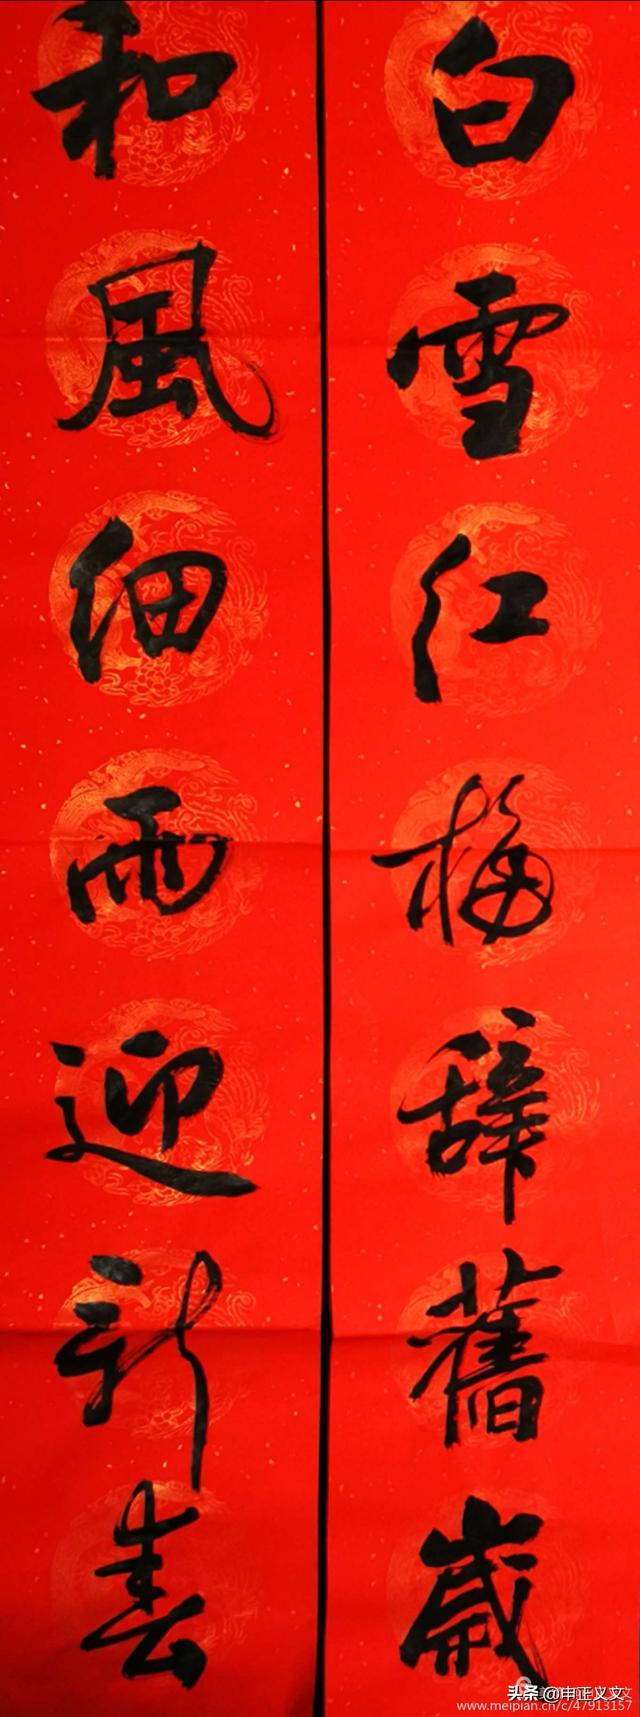 白雪红梅辞舊歲
和風细雨迎新春
头条 @申正义文
www.meipian.cn/c/47913157